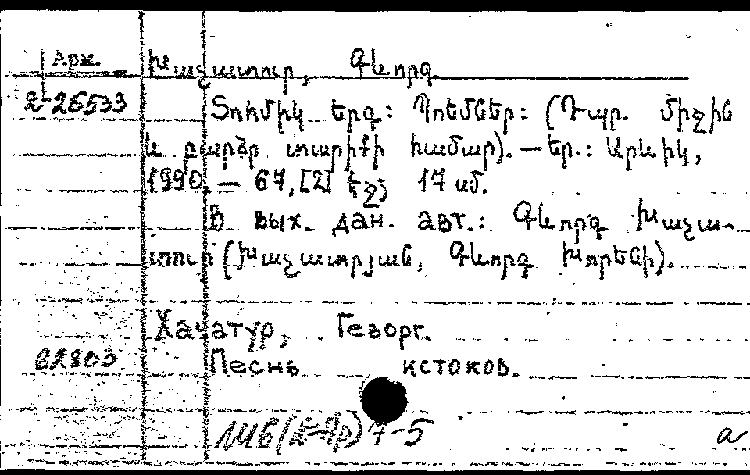 Арм. Խաչատուր, Գևորգ
2-26533 Տոհմիկ երգ: Պոեմներ: (Դպր. միջին
և բարձր տարիքի համար). — Եր.: Արևիկ,
1990. — 67, [2] էջ; 17 սմ.
В вых. дан. авт.: Գևորգ Խաչա-
տուր (Խաչատրյան, Գևորգ Խորենի).
Хачатур, Геворг.
82803 Песнь истоков.
а